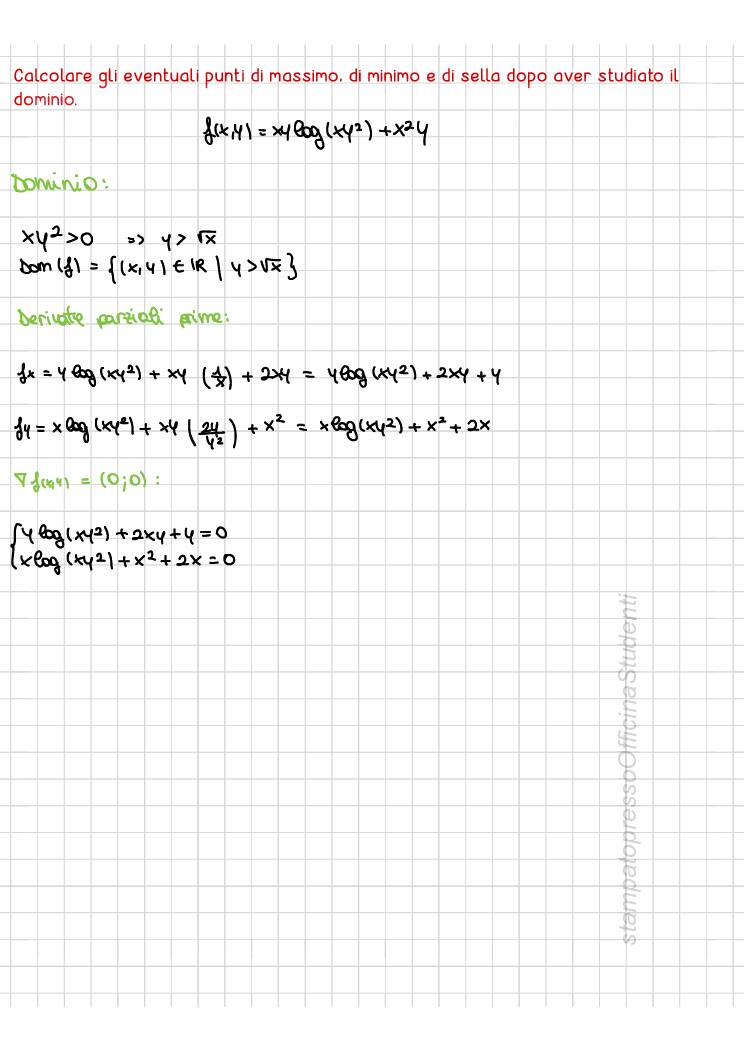 Calcolare gli eventuali punti di massimo, di minimo e di sella dopo aver studiato il
dominio.
f(x,y) = xy log(xy²) + x²y
Dominio:
xy² > 0 => y > √x
Dom(f) = {(x,y) ∈ ℝ | y > √x}
Derivate parziali prime:
fx = y log(xy²) + xy (1/x) + 2xy = y log(xy²) + 2xy + y
fy = x log(xy²) + xy (2y/y²) + x² = x log(xy²) + x² + 2x
∇f(x,y) = (0;0) :
{ y log(xy²) + 2xy + y = 0
x log(xy²) + x² + 2x = 0
stampatopressoOfficinaStudenti